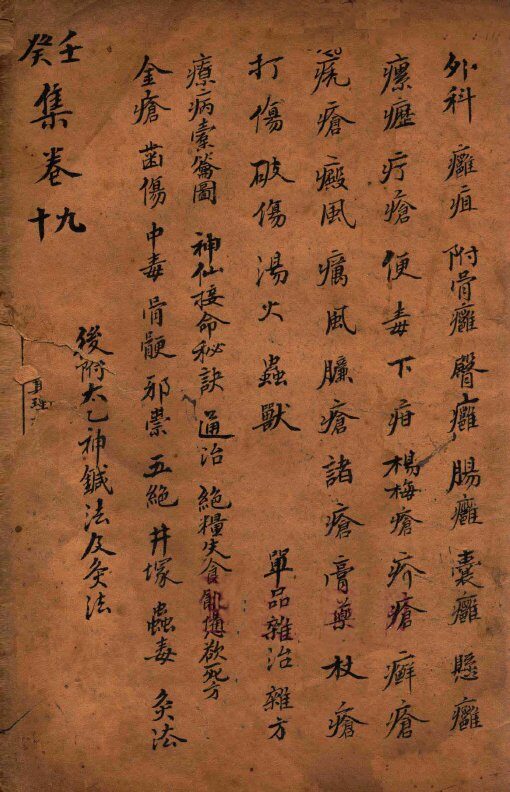 外科 癰疽 附骨癰 臀癰 腸癰 囊癰 懸癰
瘰癧 疔瘡 便毒 下疳 楊梅瘡 疥瘡 癬瘡
疣瘡 癜風 癘風 臁瘡 諸瘡 膏藥 杖瘡
打傷 破傷 湯火 蟲獸 單品雜治 雜方
療病橐籥圖 神仙接命秘訣 通治 絕糧失食飢憊欲死方
金瘡 齒傷 中毒 骨鯁 邪祟 五絕 井塚 蠱毒 灸法
後附太乙神鍼法及灸法
壬癸
集卷
九十